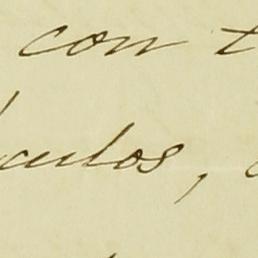 con t
culos,